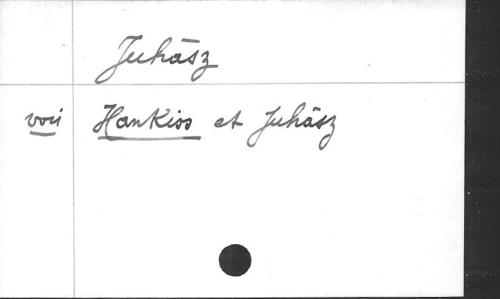 Juhász
voir Hankiss et Juhász